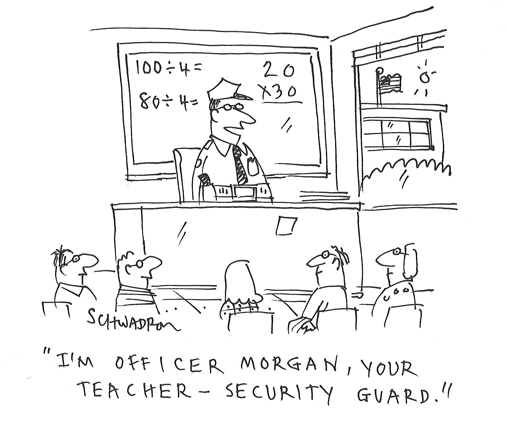 100÷4=
80÷4=
20
X30
SCHWADRON
"I'M OFFICER MORGAN, YOUR
TEACHER – SECURITY GUARD."